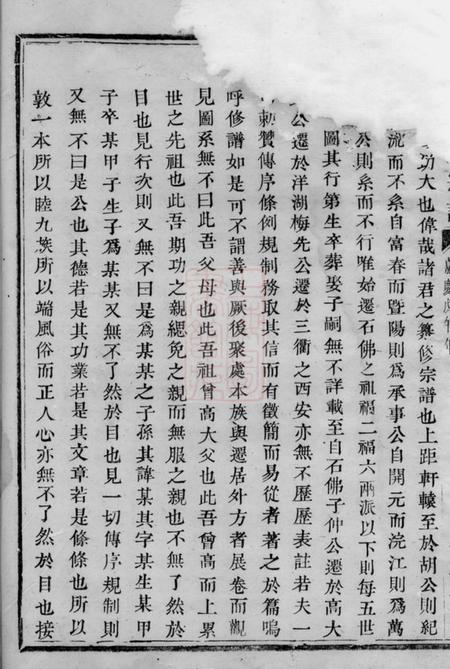 功大也偉哉諸君之纂修宗譜也上距軒轅至於胡公則紀
流而不系自富春而暨陽則為承事公自開元而浣江則為萬
公則系而不行唯始遷石佛之祖福二福六兩派以下則每五世
圖其行第生卒葬娶子嗣無不詳載至自石佛子仲公遷於高大
公遷於洋湖梅先公遷於三衢之西安亦無不歷歷表註若夫一
勅贊傳序條例規制務取其信而有徵簡而易從者著之於篇嗚
呼修譜如是可不謂善與厥後聚處本族與遷居外方者展卷而觀
見圖系無不曰此吾父母也此吾祖曾高大父也此吾曾高而上累
世之先祖也此吾期功之親緦免之親而無服之親也不無了然於
目也見行次則又無不曰是為某某之子孫其諱某其字某生某甲
子卒某甲子生子為某某又無不了然於目也見一切傳序規制則
又無不曰是公也其德若是其功業若是其文章若是條條也所以
敦一本所以睦九族所以端風俗而正人心亦無不了然於目也接